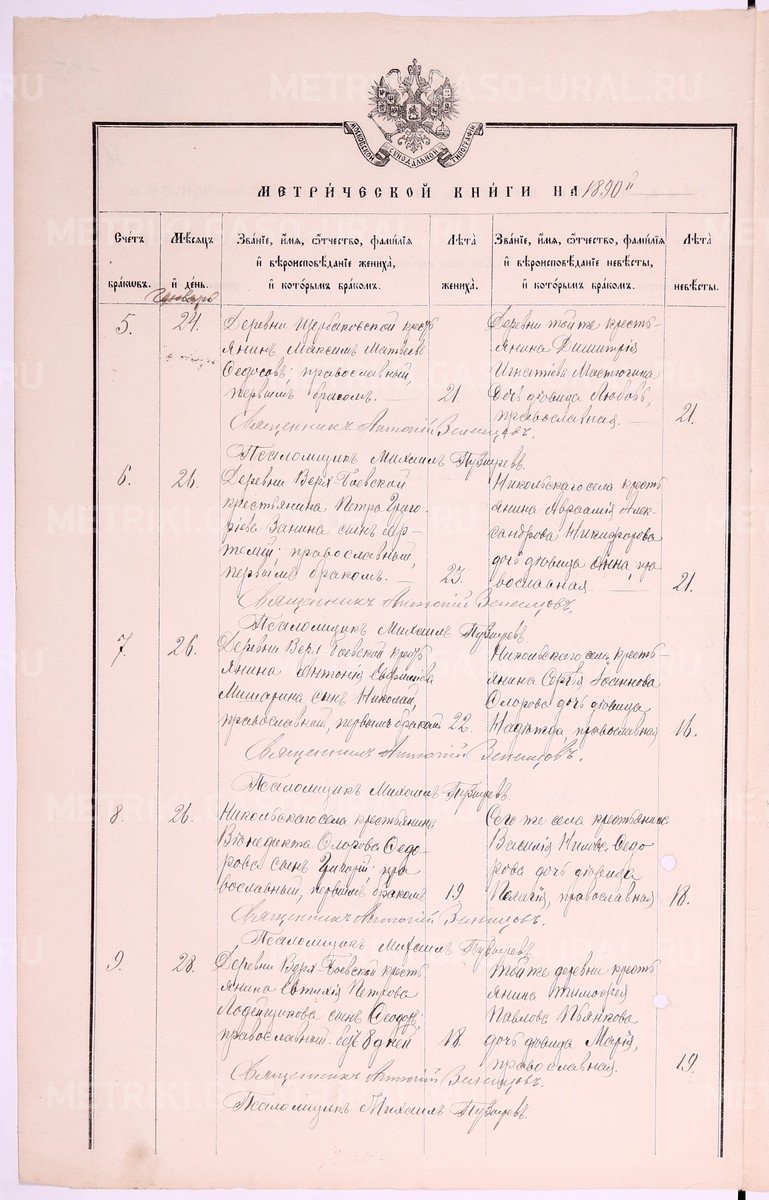 METRIKI.GASO-URAL.RU
МОСКОВСКОЙ СУНОДАЛЬНОЙ ТИПОГРАФІИ
МЕТРИ́ЧЕСКОЙ КНИ́ГИ НА 1890й
Сче́тъ бра́кѡвъ.
Мѣ́сяцъ и҆ де́нь.
Зва́нїе, и҆́мя, ѻ҆́тчество, фами́лїя и҆ вѣроисповѣ́данїе жениха̀, и҆ кото́рымъ бра́комъ.
Лѣ́та жениха̀.
Зва́нїе, и҆́мя, ѻ҆́тчество, фами́лїя и҆ вѣроисповѣ́данїе невѣ́сты, и҆ кото́рымъ бра́комъ.
Лѣ́та невѣ́сты.
Генварь
5.
24.
Деревни Щербаковской кресть
янинъ Максимъ Матвѣевъ
Ѳедосовъ; православный,
первымъ бракомъ.
21.
Деревни той же кресть-
янина Димитрія
Игнатіева Мастюгина
дочь дѣвица Любовь,
православная.
21.
Священникъ Антоній Зеленцовъ.
Псаломщикъ Михаилъ
6.
26.
Деревни Верх-Боевской
крестьянина Петра Григо
ріева Занина сынъ Ар-
темій; православный,
первымъ бракомъ.
23.
Никольскаго села кресть
янина Авраамія Алек-
сандрова Никифорова
дочь дѣвица Анна, пра
вославная.
21.
Священникъ Антоній Зеленцовъ.
Псаломщикъ Михаилъ
7
26.
Деревни Верх-Боевской кресть
янина Антонія Евфиміева
Мишарина сынъ Николай,
православный, первымъ бракомъ
22.
Никольскаго села кресть-
янина Сергѣя Іоаннова
Флорова дочь дѣвица
Надежда, православная
16.
Священникъ Антоній Зеленцовъ.
Псаломщикъ Михаилъ
8.
26.
Никольскаго села крестьянина
Венедикта Флорова Ѳедо-
рова сынъ Григорій; пра
вославный, первымъ бракомъ
19
Сего же села крестьянина
Василія Нилова Ѳедо
рова дочь дѣвица
Пелагія, православная
18.
Священникъ Антоній Зеленцовъ.
Псаломщикъ Михаилъ
9.
28.
Деревни Верх-Боевской кресть
янина Евтихія Петрова
Лодейщикова сынъ Ѳеодоръ;
православный. безъ 8 дней
18.
Той же деревни кресть
янина Тимоѳея
Павлова Пьянкова
дочь дѣвица Марія,
православная.
19.
Священникъ Антоній Зеленцовъ.
Псаломщикъ Михаилъ